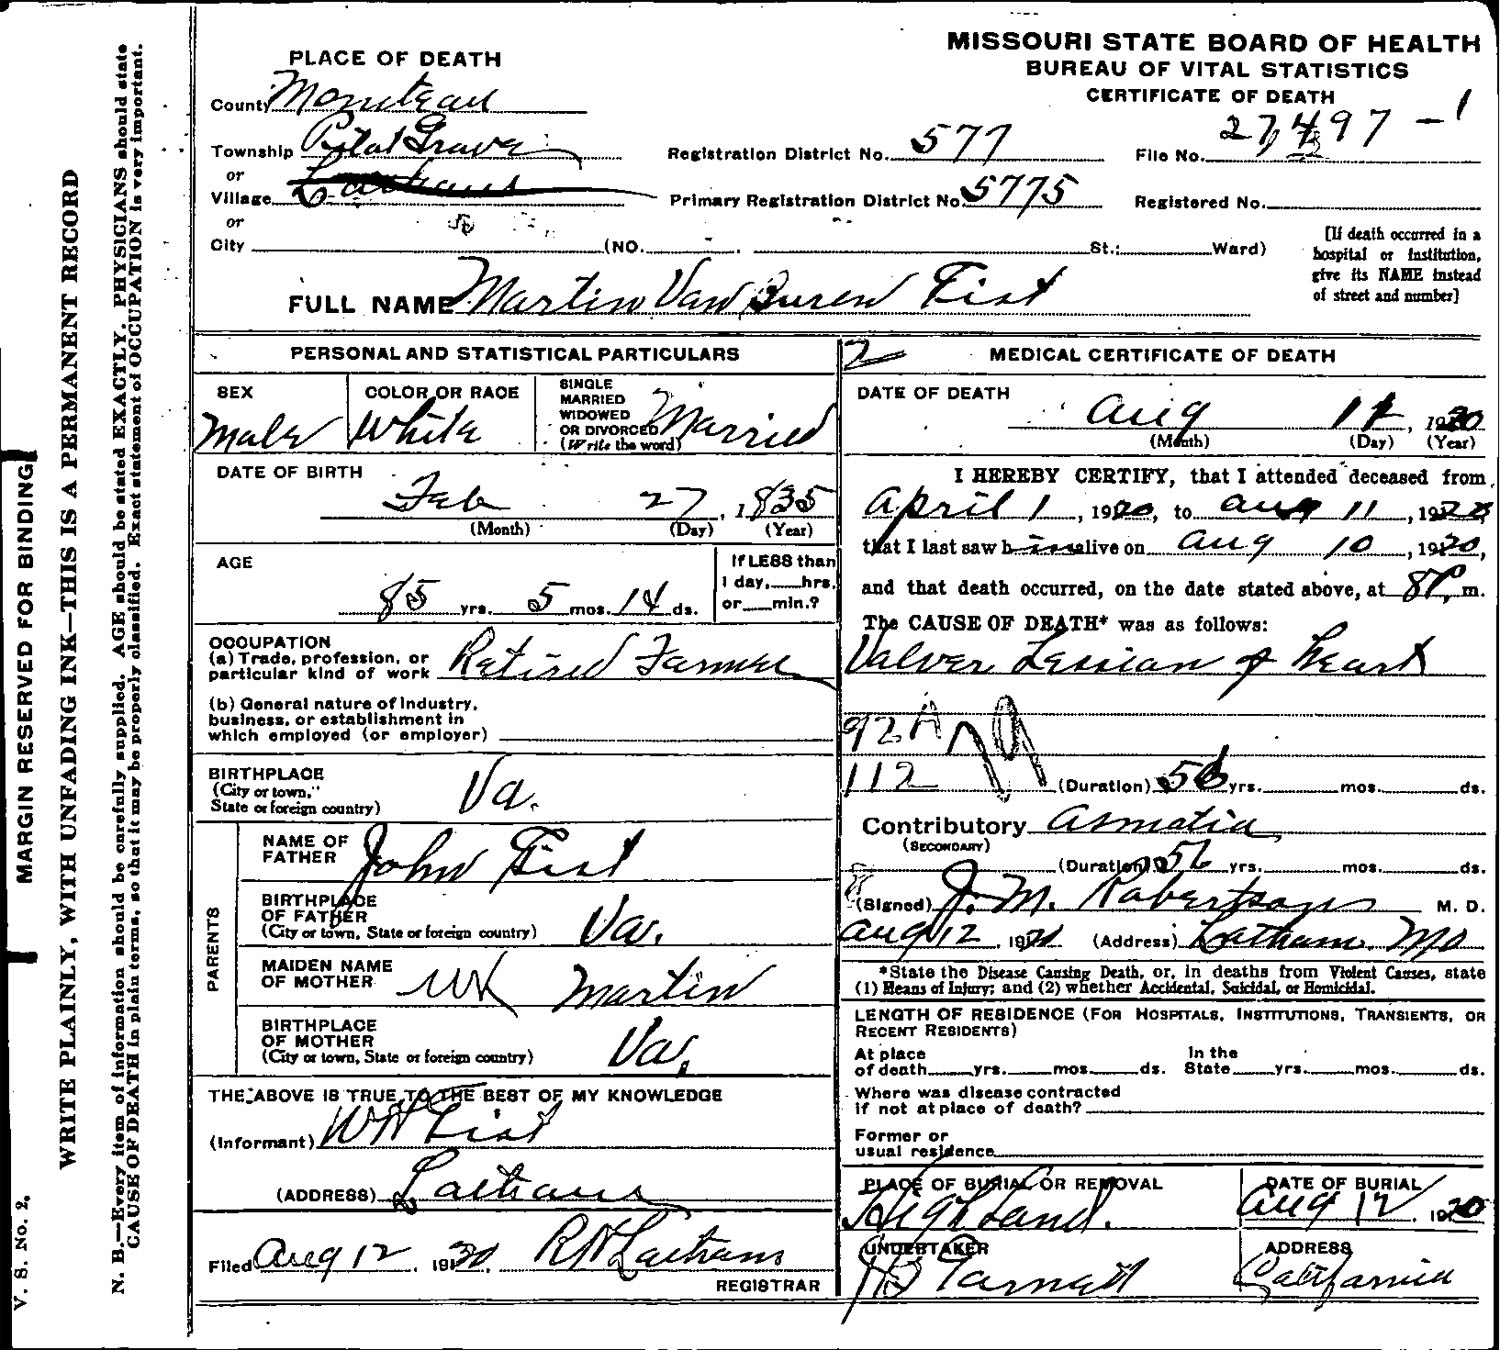 MISSOURI STATE BOARD OF HEALTH
BUREAU OF VITAL STATISTICS
CERTIFICATE OF DEATH
PLACE OF DEATH
County Moniteau
Township Pilot Grove
or
Village Latham
or
City (NO. St.; Ward)
Registration District No. 577
Primary Registration District No. 5775
File No. 27497 - 1
Registered No.
[If death occurred in a
hospital or institution,
give its NAME instead
of street and number]
FULL NAME Martin Van Buren Fist
PERSONAL AND STATISTICAL PARTICULARS
SEX
Male
COLOR OR RACE
White
SINGLE
MARRIED
WIDOWED
OR DIVORCED
(Write the word)
Married
DATE OF BIRTH
Feb 27, 1835
(Month) (Day) (Year)
AGE
85 yrs. 5 mos. 14 ds.
If LESS than
1 day, hrs.
or min.?
OCCUPATION
(a) Trade, profession, or
particular kind of work Retired Farmer
(b) General nature of industry,
business, or establishment in
which employed (or employer)
BIRTHPLACE
(City or town,
State or foreign country)
Va.
PARENTS
NAME OF
FATHER
John Fist
BIRTHPLACE
OF FATHER
(City or town, State or foreign country)
Va.
MAIDEN NAME
OF MOTHER
UK Martin
BIRTHPLACE
OF MOTHER
(City or town, State or foreign country)
Va.
THE ABOVE IS TRUE TO THE BEST OF MY KNOWLEDGE
(Informant) WH Fist
(ADDRESS) Latham
Filed Aug 12, 1920, RH Latham
REGISTRAR
2 MEDICAL CERTIFICATE OF DEATH
DATE OF DEATH
Aug 11, 1920
(Month) (Day) (Year)
I HEREBY CERTIFY, that I attended deceased from
April 1, 1920, to Aug 11, 1920
that I last saw h im alive on Aug 10, 1920,
and that death occurred, on the date stated above, at 8P. m.
The CAUSE OF DEATH* was as follows:
Valver Lession of heart
92A
112
(Duration) yrs. mos. ds.
Contributory Asmatia
(SECONDARY)
(Duration) yrs. mos. ds.
(Signed) J. M. Robertson M. D.
Aug 12, 1920 (Address) Latham Mo
*State the Disease Causing Death, or, in deaths from Violent Causes, state
(1) Means of Injury; and (2) whether Accidental, Suicidal, or Homicidal.
LENGTH OF RESIDENCE (FOR HOSPITALS, INSTITUTIONS, TRANSIENTS, OR
RECENT RESIDENTS)
At place
of death yrs. mos. ds.
In the
State yrs. mos. ds.
Where was disease contracted
if not at place of death?
Former or
usual residence
PLACE OF BURIAL OR REMOVAL
Highland.
DATE OF BURIAL
Aug 12, 1920
UNDERTAKER
ADDRESS
California
MARGIN RESERVED FOR BINDING
WRITE PLAINLY, WITH UNFADING INK—THIS IS A PERMANENT RECORD
N. B.—Every item of information should be carefully supplied. AGE should be stated EXACTLY. PHYSICIANS should state
CAUSE OF DEATH in plain terms, so that it may be properly classified. Exact statement of OCCUPATION is very important.
V. S. No. 2.